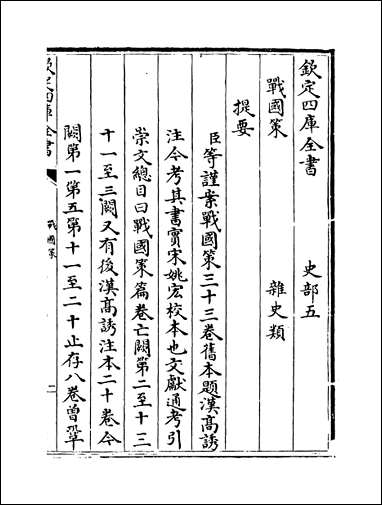 欽定四庫全書　史部五
戰國策　雜史類
提要
臣等謹案戰國策三十三卷舊本題漢髙誘
注今考其書實宋姚宏校本也文獻通考引
崇文總目曰戰國策篇卷亡闕第二至十三
十一至三闕又有後漢髙誘注本二十卷今
闕第一第五第十一至二十止存八卷曾鞏
欽定四庫全書
戰國策